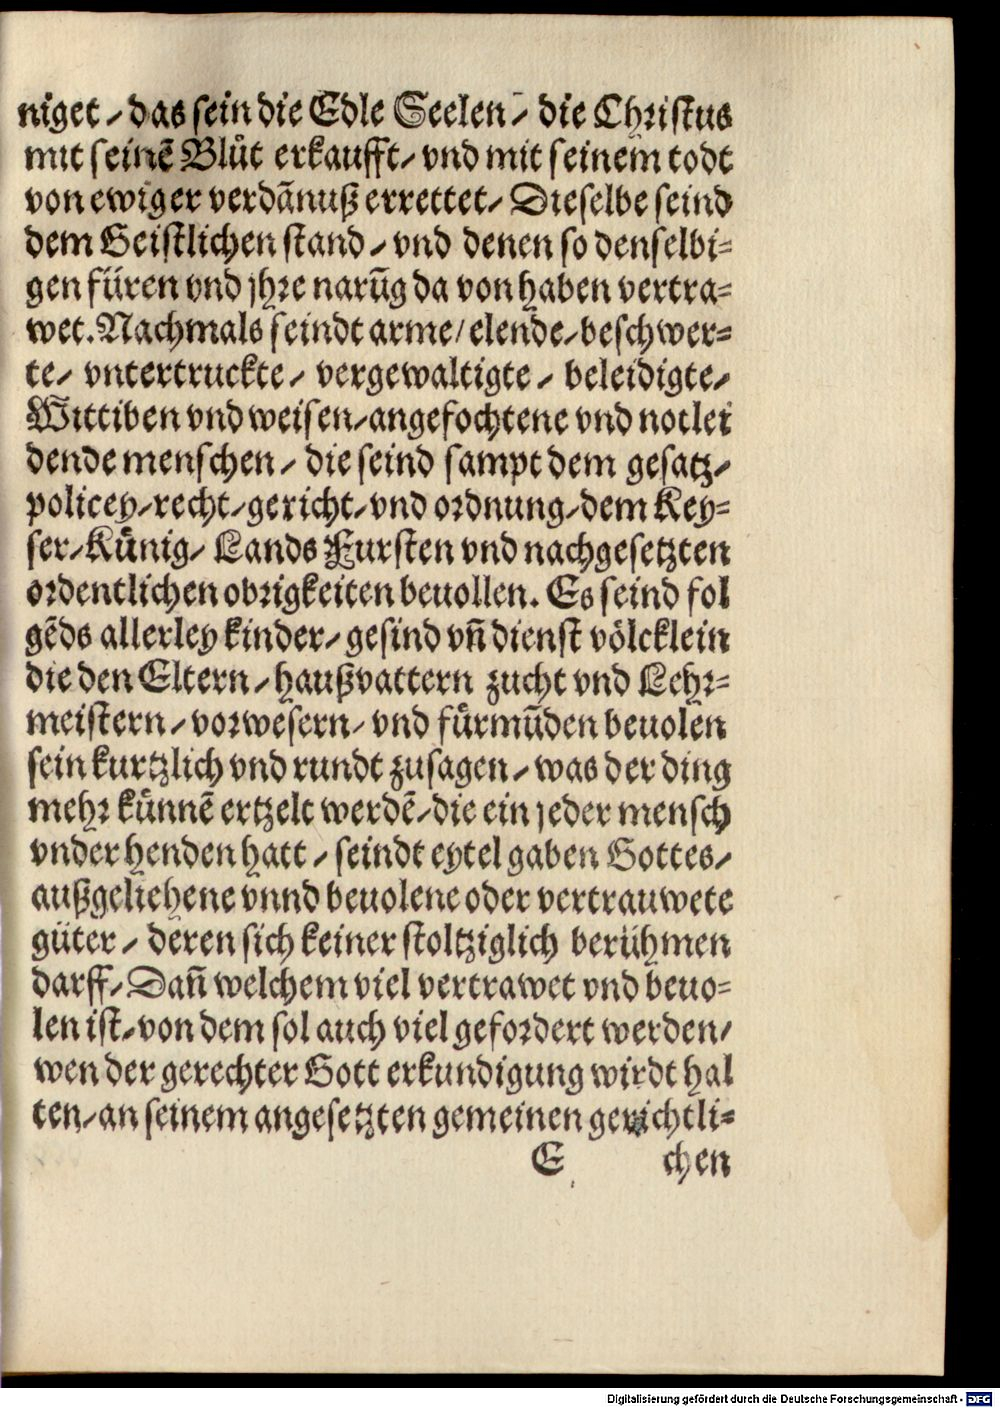 niget / das sein die Edle Seelen / die Christus
mit seinẽ Blůt erkaufft / vnd mit seinem todt
von ewiger verdãnuß errettet / Dieselbe seind
dem Geistlichen stand / vnd denen so denselbi⸗
gen füren vnd jhre narũg da von haben vertra⸗
wet. Nachmals seindt arme / elende / beschwer⸗
te / vntertruckte / vergewaltigte / beleidigte /
Wittiben vnd weisen / angefochtene vnd notlei
dende menschen / die seind sampt dem gesatz /
policey / recht / gericht / vnd ordnung / dem Key⸗
ser / Künig / Lands Fursten vnd nachgesetzten
ordentlichen obrigkeiten beuollen. Es seind fol
gẽds allerley kinder / gesind vñ dienst völcklein
die den Eltern / haußvattern zucht vnd Lehr⸗
meistern / vorwesern / vnd fürmũden beuolen
sein kurtzlich vnd rundt zusagen / was der ding
mehr künnẽ ertzelt werdẽ / die ein jeder mensch
vnder henden hatt / seindt eytel gaben Gottes /
außgeliehene vnnd beuolene oder vertrauwete
güter / deren sich keiner stoltziglich berühmen
darff / Dañ welchem viel vertrawet vnd beuo⸗
len ist / von dem sol auch viel gefordert werden /
wen der gerechter Gott erkundigung wirdt hal
ten / an seinem angesetzten gemeinen gerichtli⸗
E chen
Digitalisierung gefördert durch die Deutsche Forschungsgemeinschaft - DFG